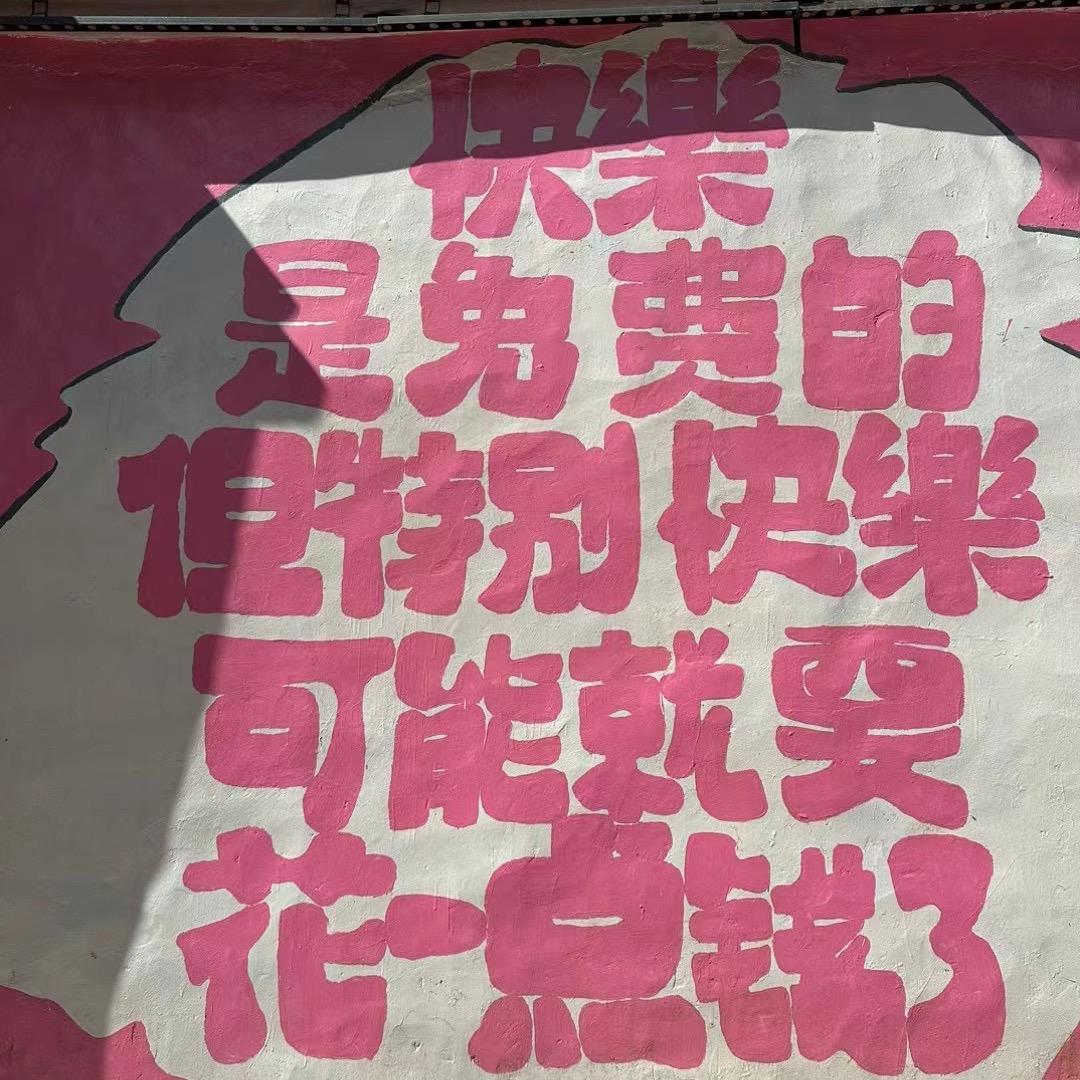 快樂
是免费的
但特别快樂
可能就要
花一点钱了